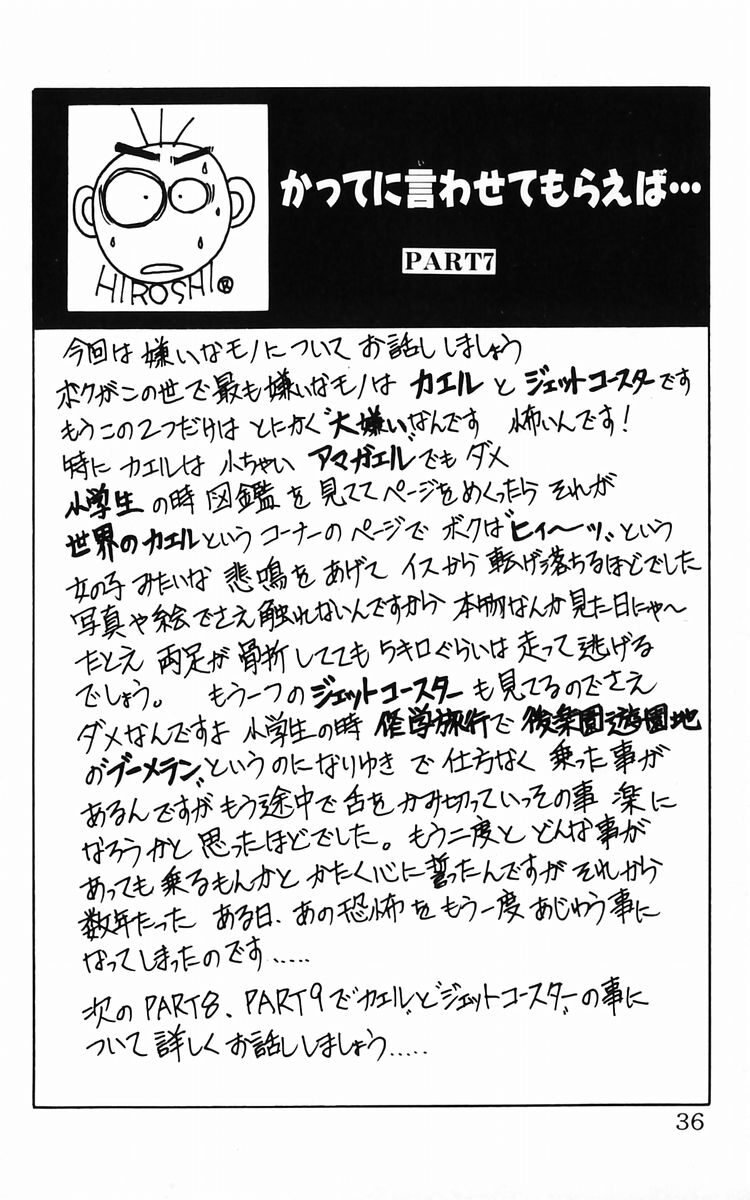 かってに言わせてもらえば…
PART7
HIROSHI®
今回は嫌いなモノについてお話ししましょう
ボクがこの世で最も嫌いなモノは カエル と ジェットコースターです
もうこの2つだけは とにかく"大嫌い"なんです 怖いんです!
特に カエルは 小ちゃい アマガエルでも ダメ
小学生 の時 図鑑 を 見ててページをめくったら それが
世界のカエルという コーナーのページで ボクは"ヒィ〜ッ"という
女の子 みたいな 悲鳴を あげて イスから 転げ落ちるほどでした
写真や絵でさえ触れないんですから 本物なんか見た日にゃ〜
たとえ 両足が 骨折 してても 5キロぐらいは 走って 逃げる
でしょう。 もう一つの ジェットコースター も 見てるのでさえ
ダメなんですよ 小学生の時 修学旅行で 後楽園遊園地
の"ブーメラン"というのに なりゆき で 仕方なく 乗った事が
あるんですが もう途中で 舌を かみ切って いっその事 楽に
なろうかと 思ったほどでした。もう二度と どんな事が
あっても 乗るもんかと かたく心に誓ったんですが それから
数年たった ある日、あの恐怖を もう一度 あじわう事に
なってしまったのです……
次の PART8、PART9で"カエル"と"ジェットコースター"の事に
ついて 詳しく お話ししましょう……
36